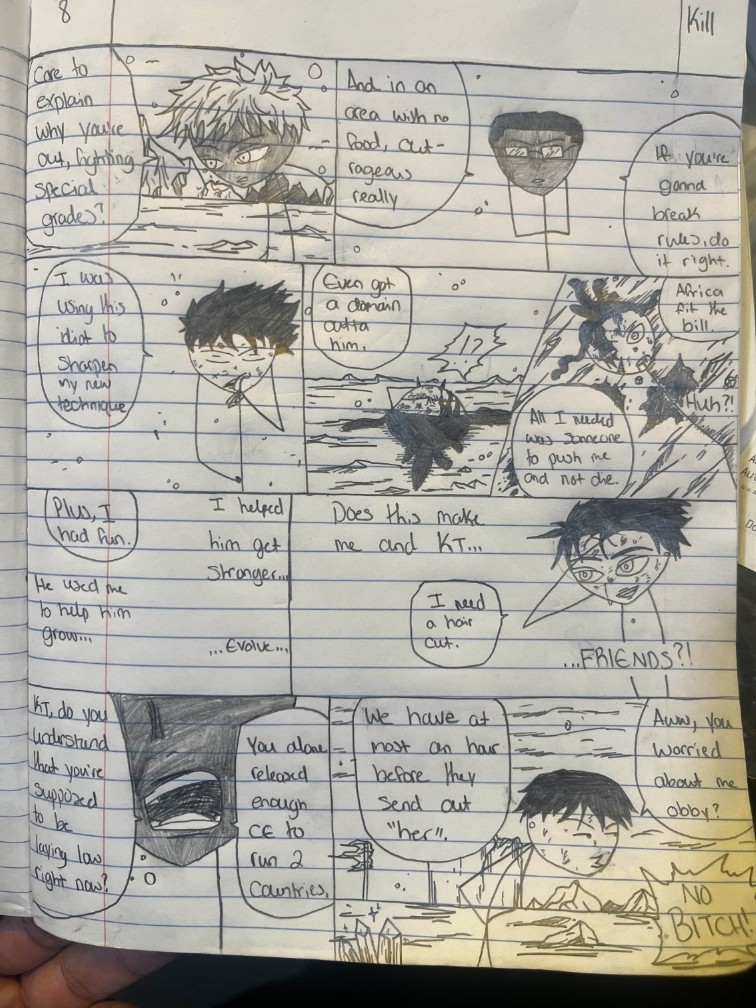 8
Kill
Care to
explain
why you're
out, fighting
special
grades?
And in an
area with no
food, out-
rageous
really
If you're
gonna
break
rules, do
it right.
I was
using this
idiot to
sharpen
my new
technique
Even got
a domain
outta
him.
!?
Africa
fit the
bill.
Huh?!
All I needed
was someone
to push me
and not die.
Plus, I
had fun.
I helped
him get
stronger...
He used me
to help him
grow...
...Evolve...
Does this make
me and KT...
I need
a hair
cut.
...FRIENDS?!
KT, do you
understand
that you're
supposed
to be
laying low
right now?
You alone
released
enough
CE to
run 2
countries.
We have at
most an hour
before they
send out
"her".
Aww, you
worried
about me
obby?
NO
BITCH!